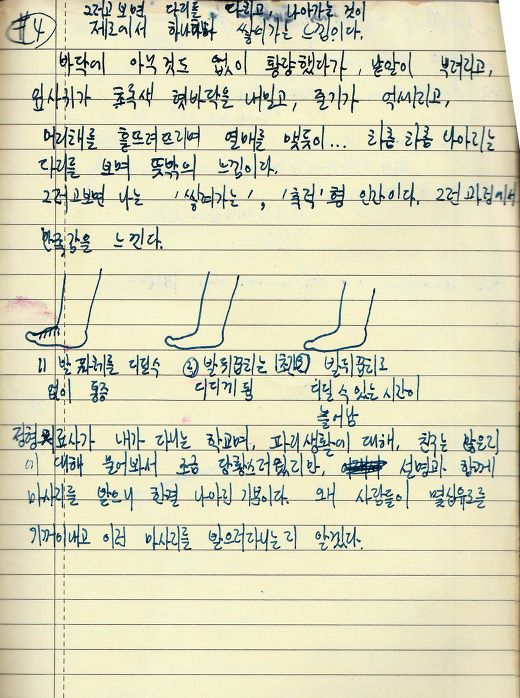 #4
그러고보면 다리를 다리고 나아가는 것이
제로에서 하나하나 쌓여가는 느낌이다.
바닥에 아무것도 없이 황량했다가, 낱알이 뿌려리고,
잎사귀가 초록색 혓바닥을 내밀고, 줄기가 억세리고,
머리채를 흩뜨려뜨리며 열매를 맺듯이... 차츰 차츰 나아리는
다리를 보며 뜻밖의 느낌이다.
그러고보면 나는 '쌓여가는', '축적'형 인간이다. 그런 과정에서
만족감을 느낀다.
1) 발 전체를 디딜수
없이 통증
② 발뒤꿈치는 (조금만)
디디게 됨
발뒤꿈치로
디딜 수 있는 시간이
늘어남
정형 료사가 내가 다니는 학교며, 파리생활에 대해, 친구는 많은리
에 대해 물어봐서 조금 당황스러웠리만, 설명과 함께
마사리를 받으니 한결 나아린 기분이다. 왜 사람들이 몇십유로를
기꺼이내고 이런 마사리를 받으러다니는리 알겠다.